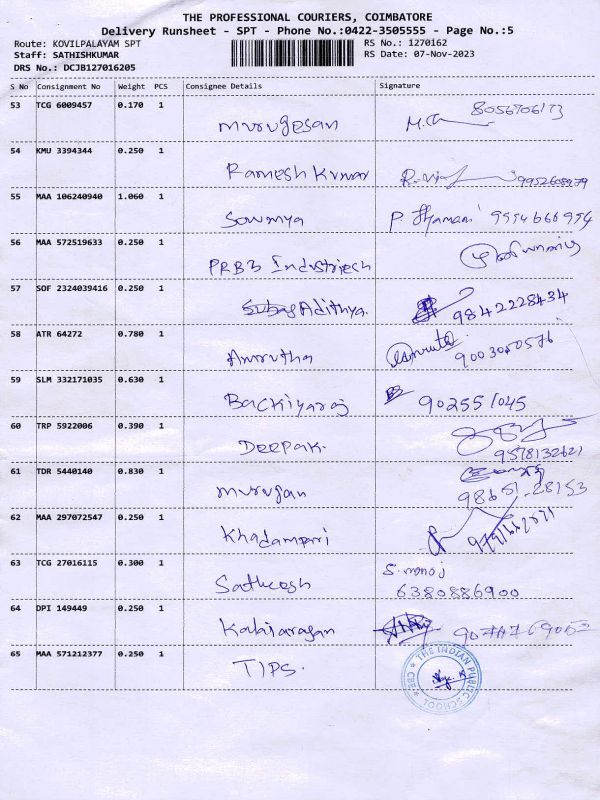 THE PROFESSIONAL COURIERS, COIMBATORE
Delivery Runsheet - SPT - Phone No.:0422-3505555 - Page No.:5
Route: KOVILPALAYAM SPT
Staff: SATHISHKUMAR
DRS No.: DCJB127016205
RS No.: 1270162
RS Date: 07-Nov-2023
S No Consignment No Weight PCS Consignee Details Signature
53 TCG 6009457 0.170 1 Murugesan 8056706173
54 KMU 3394344 0.250 1 Ramesh Kumar 9952608939
55 MAA 106240940 1.060 1 Sowmya P.
56 MAA 572519633 0.250 1
57 SOF 2324039416 0.250 1 Adithya. 9842228434
58 ATR 64272 0.780 1 Amrutha
59 SLM 332171035 0.630 1 Backiyaraj 902551045
60 TRP 5922006 0.390 1 Deepak. 9578132621
61 TDR 5440140 0.830 1 Murugan 98651-28153
62 MAA 297072547 0.250 1
63 TCG 27016115 0.300 1 Satheesh S. manoj
6380886900
64 DPI 149449 0.250 1
65 MAA 571212377 0.250 1 TIPS.
THE INDIAN PUBLIC SCHOOL
CBE